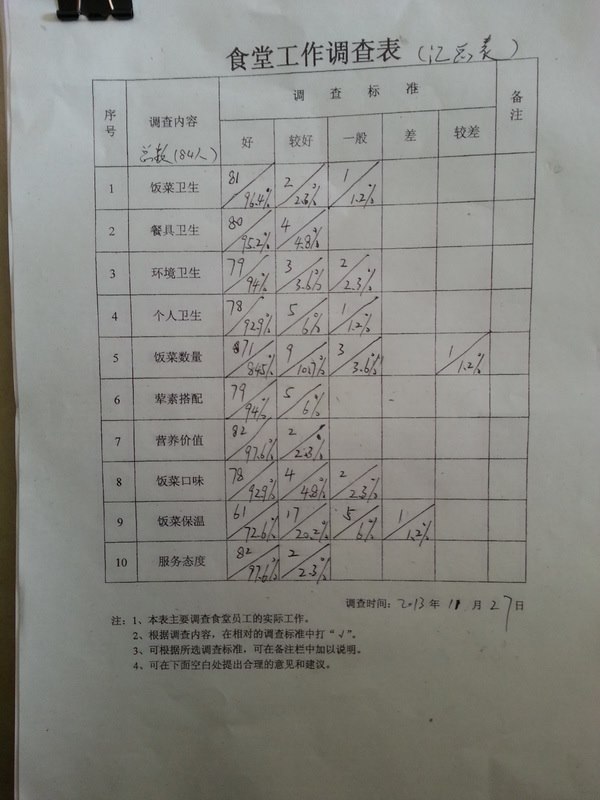 食堂工作调查表（汇总表）
序号 调查内容 总数(84人) 调查标准 备注
好 较好 一般 差 较差
1 饭菜卫生 81 96.4% 2 2.3% 1 1.2%
2 餐具卫生 80 95.2% 4 4.8%
3 环境卫生 79 94% 3 3.6% 2 2.3%
4 个人卫生 78 92.9% 5 6% 1 1.2%
5 饭菜数量 71 84.5% 9 10.7% 3 3.6% 1 1.2%
6 荤素搭配 79 94% 5 6%
7 营养价值 82 97.6% 2 2.3%
8 饭菜口味 78 92.9% 4 4.8% 2 2.3%
9 饭菜保温 61 72.6% 17 20.2% 5 6% 1 1.2%
10 服务态度 82 97.6% 2 2.3%
调查时间：2013年11月27日
注：1、本表主要调查食堂员工的实际工作。
2、根据调查内容，在相对的调查标准中打“√”。
3、可根据所选调查标准，可在备注栏中加以说明。
4、可在下面空白处提出合理的意见和建议。